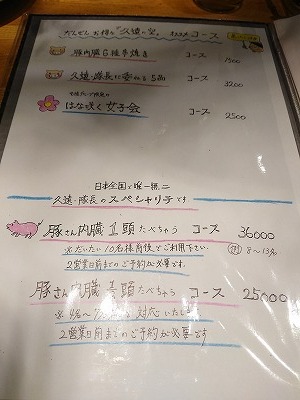 だんぜん お得な "久遠の空" オススメ コース
豚内臓6種串焼き コース 1500
久遠・隊長に委ねる5品 コース 3200
はな咲く女子会 コース 2500
日本全国で唯一無二
久遠・隊長のスペシャリテです
豚さん内臓1頭たべちゃう コース 36000
※だいたい10名様前後でご利用下さい。 8〜13名
2営業日前までのご予約が必要です。
豚さん内臓 頭たべちゃう コース 25000
対応いたします
2営業日前までのご予約が必要です